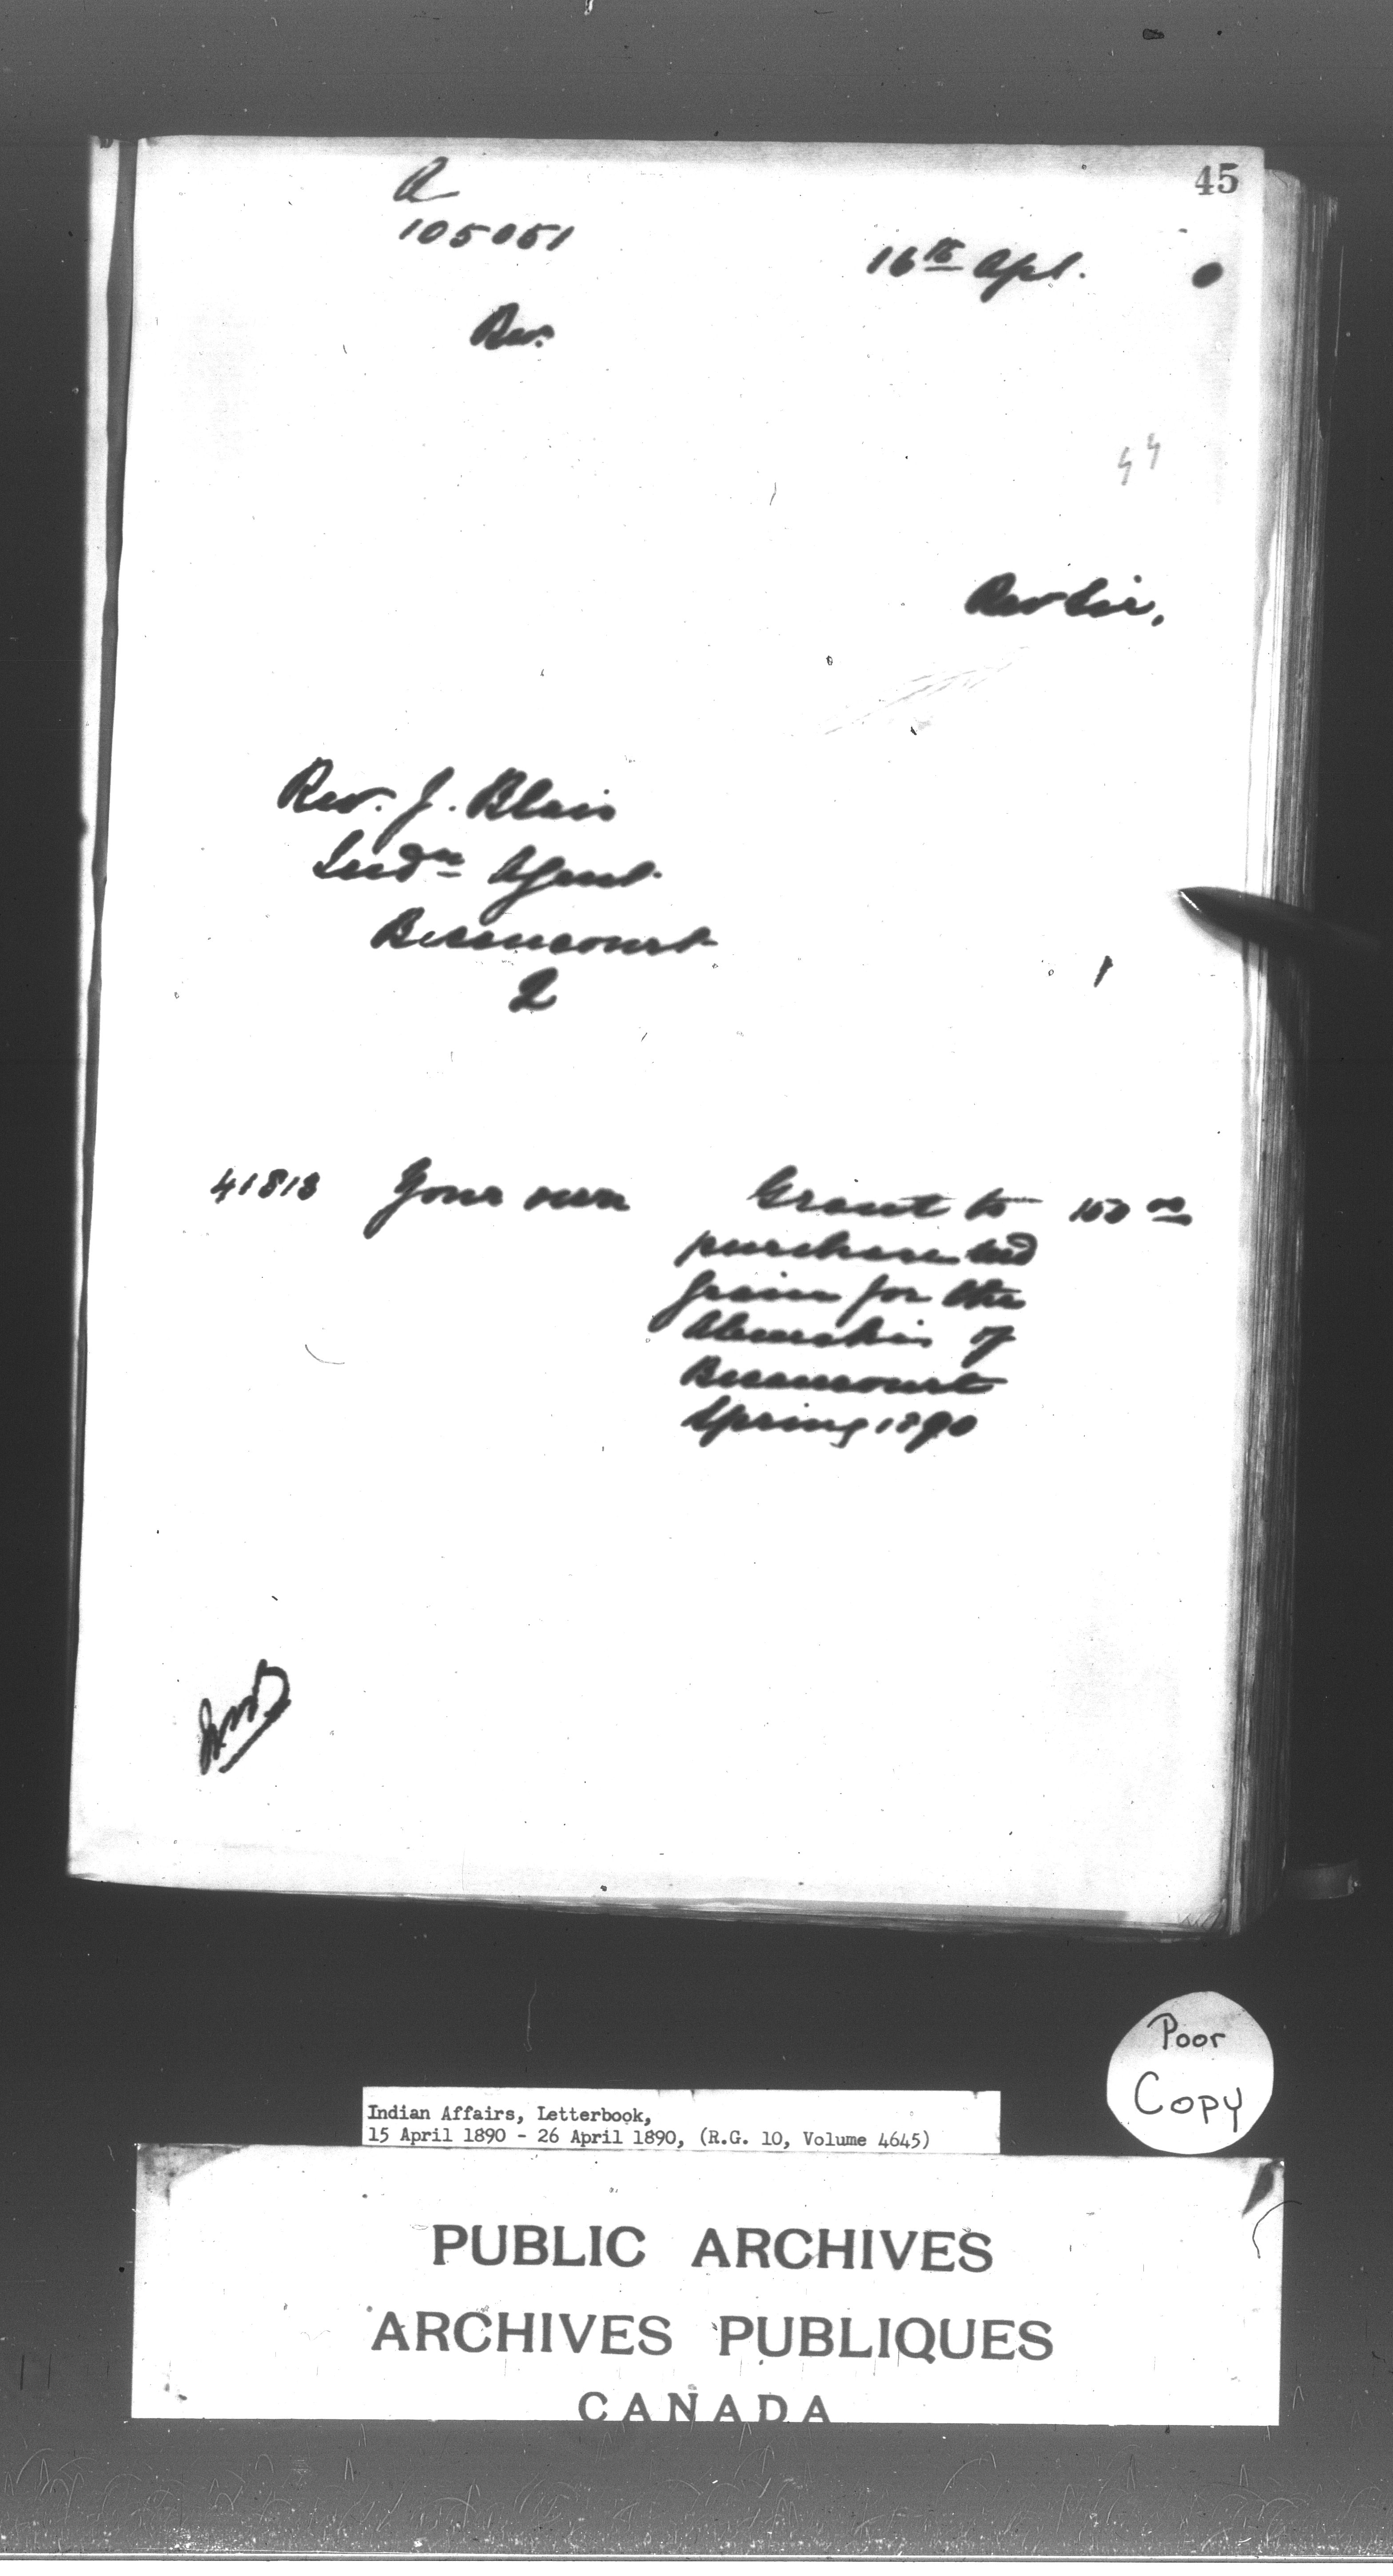 45
A
105051
16th Apl.
Rev.
44
Rev Sir,
Rev. J. Blais
Indn Agent
Becancourt
Q
41818 Your own Grant to 150 00
purchase seed
grain for the
Abenakis of
Becancourt
Spring 1890
Poor
Copy
Indian Affairs, Letterbook,
15 April 1890 - 26 April 1890, (R.G. 10, Volume 4645)
PUBLIC ARCHIVES
ARCHIVES PUBLIQUES
CANADA